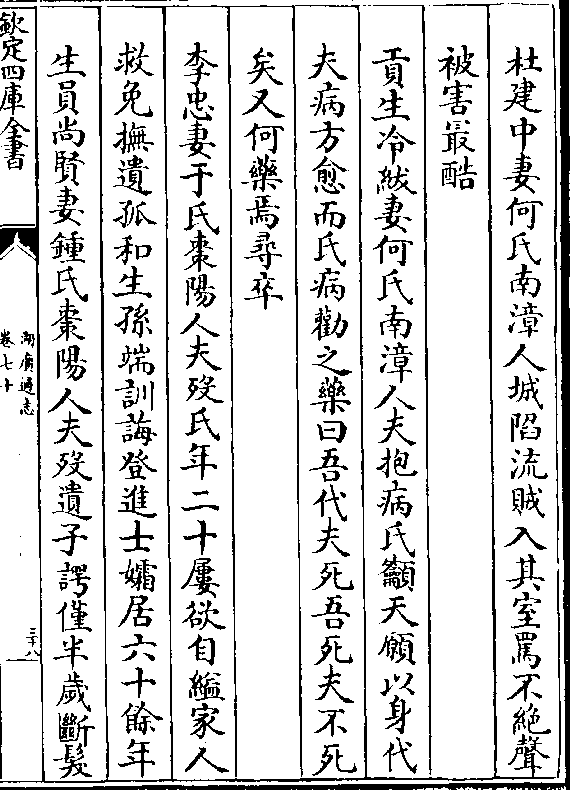 杜建中妻何氏南漳人城陷流賊入其室罵不絶聲
被害最酷
貢生冷紱妻何氏南漳人夫抱病氏籲天願以身代
夫病方愈而氏病勸之藥曰吾代夫死吾死夫不死
矣又何藥焉尋卒
李忠妻于氏棗陽人夫歿氏年二十屢欲自縊家人
救免撫遺孤和生孫端訓誨登進士孀居六十餘年
生員尚賢妻鍾氏棗陽人夫歿遺子諤僅半歲斷髮
欽定四庫全書
湖廣通志
卷七十
三十八